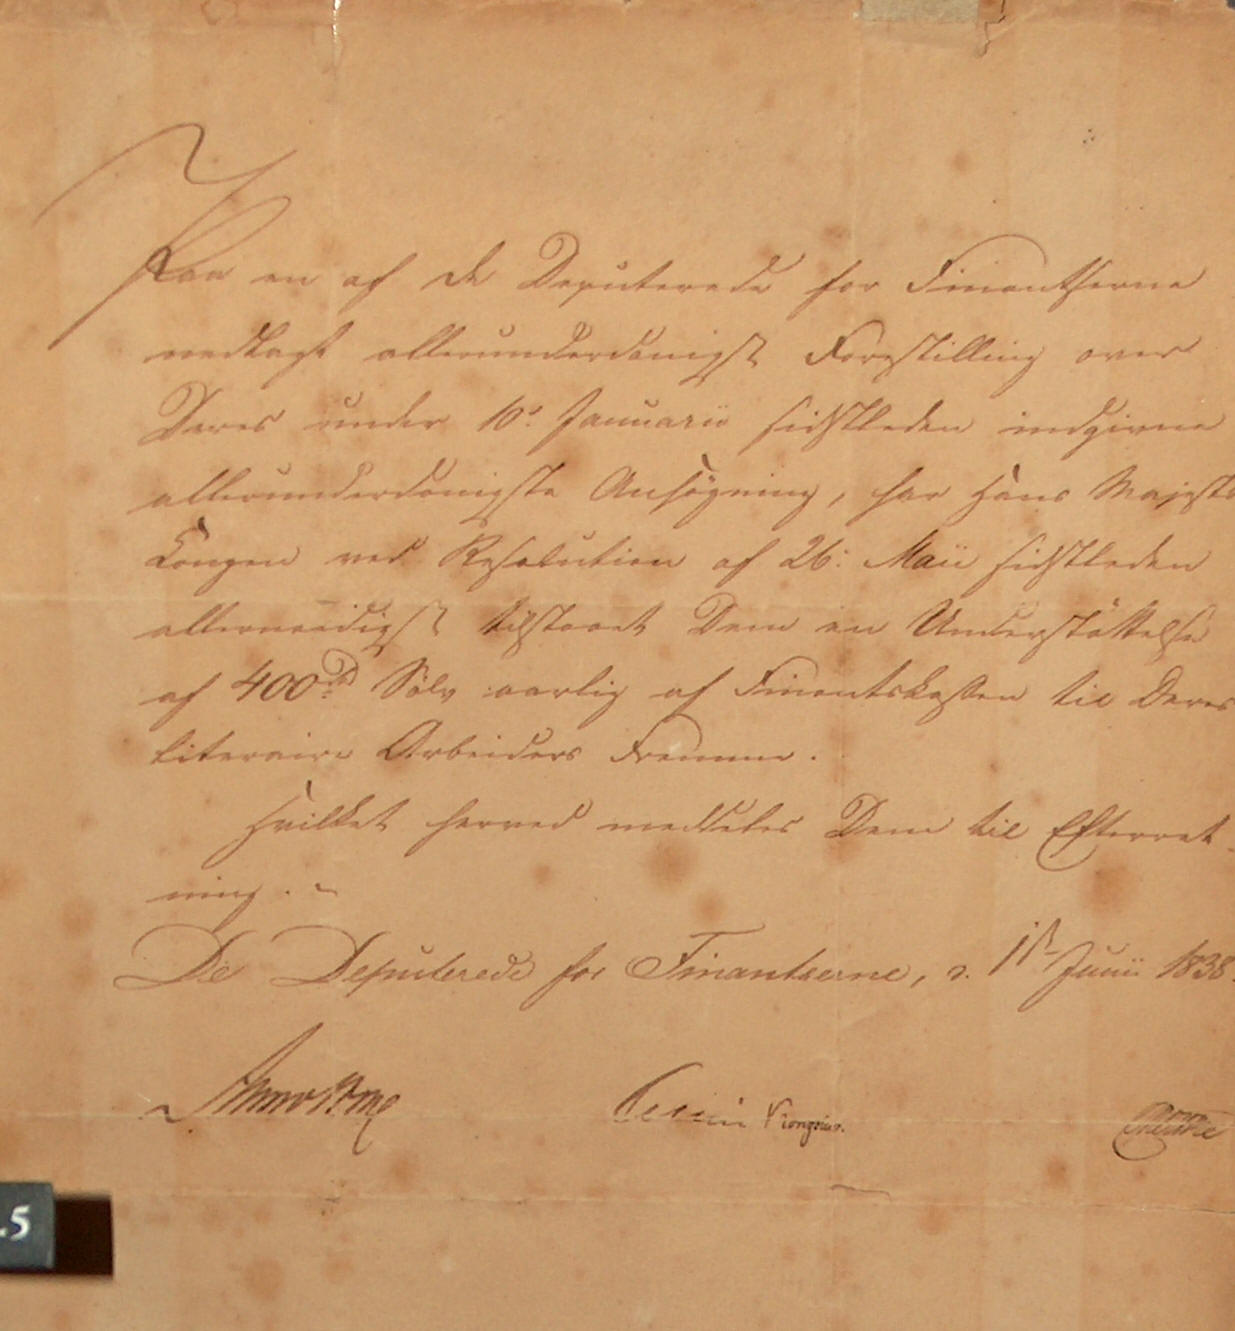 Paa en af de Deputerede for Finantserne
nedlagt allerunderdanigst Forestilling over
Deres under 10de Januarii sidstleden indgivne
allerunderdanigste Ansøgning, har Hans Majestæt
Kongen ved Resolution af 26: Maii sidstleden
allernaadigst tilstaaet Dem en Understøttelse
af 400 rd Sølv aarlig af Finantskassen til Deres
literaire Arbeiders Fremme.
Hvilket herved meddeles Dem til Efterret-
ning.
De Deputerede for Finantserne, d. 1st Junii 1838.
.5